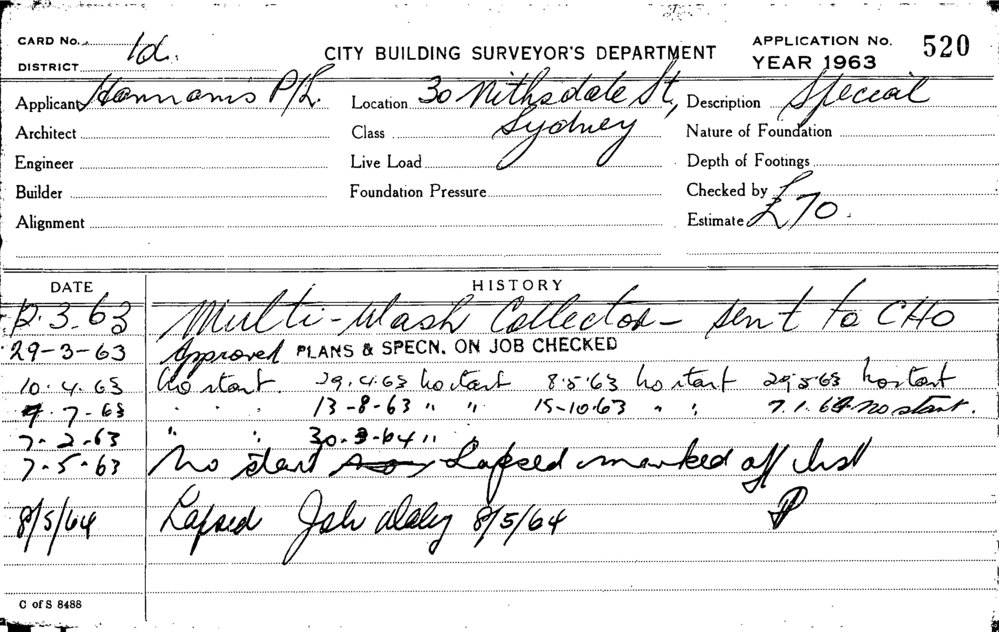 CARD No. 1d.
CITY BUILDING SURVEYOR'S DEPARTMENT
APPLICATION No. 520
DISTRICT
YEAR 1963
Applicant Hannam's P/L. Location 30 Nithsdale St, Description Special
Architect Class Sydney Nature of Foundation
Engineer Live Load Depth of Footings
Builder Foundation Pressure Checked by
Alignment Estimate £70.
DATE HISTORY
12.3.63 Multi-Wash Collector - sent to CHO
29-3-63 Approved PLANS & SPECN. ON JOB CHECKED
10.4.63 No start. 29.4.63 No start 8.5.63 No start 29.5.63 No start
7-63 " " 13-8-63 " " 15-10.63 " " 7.1.64 no start.
7-2-63 " " 30.3-64 "
7-5-63 No start Lapsed marked off list
8/5/64 Lapsed 8/5/64
C of S 8488